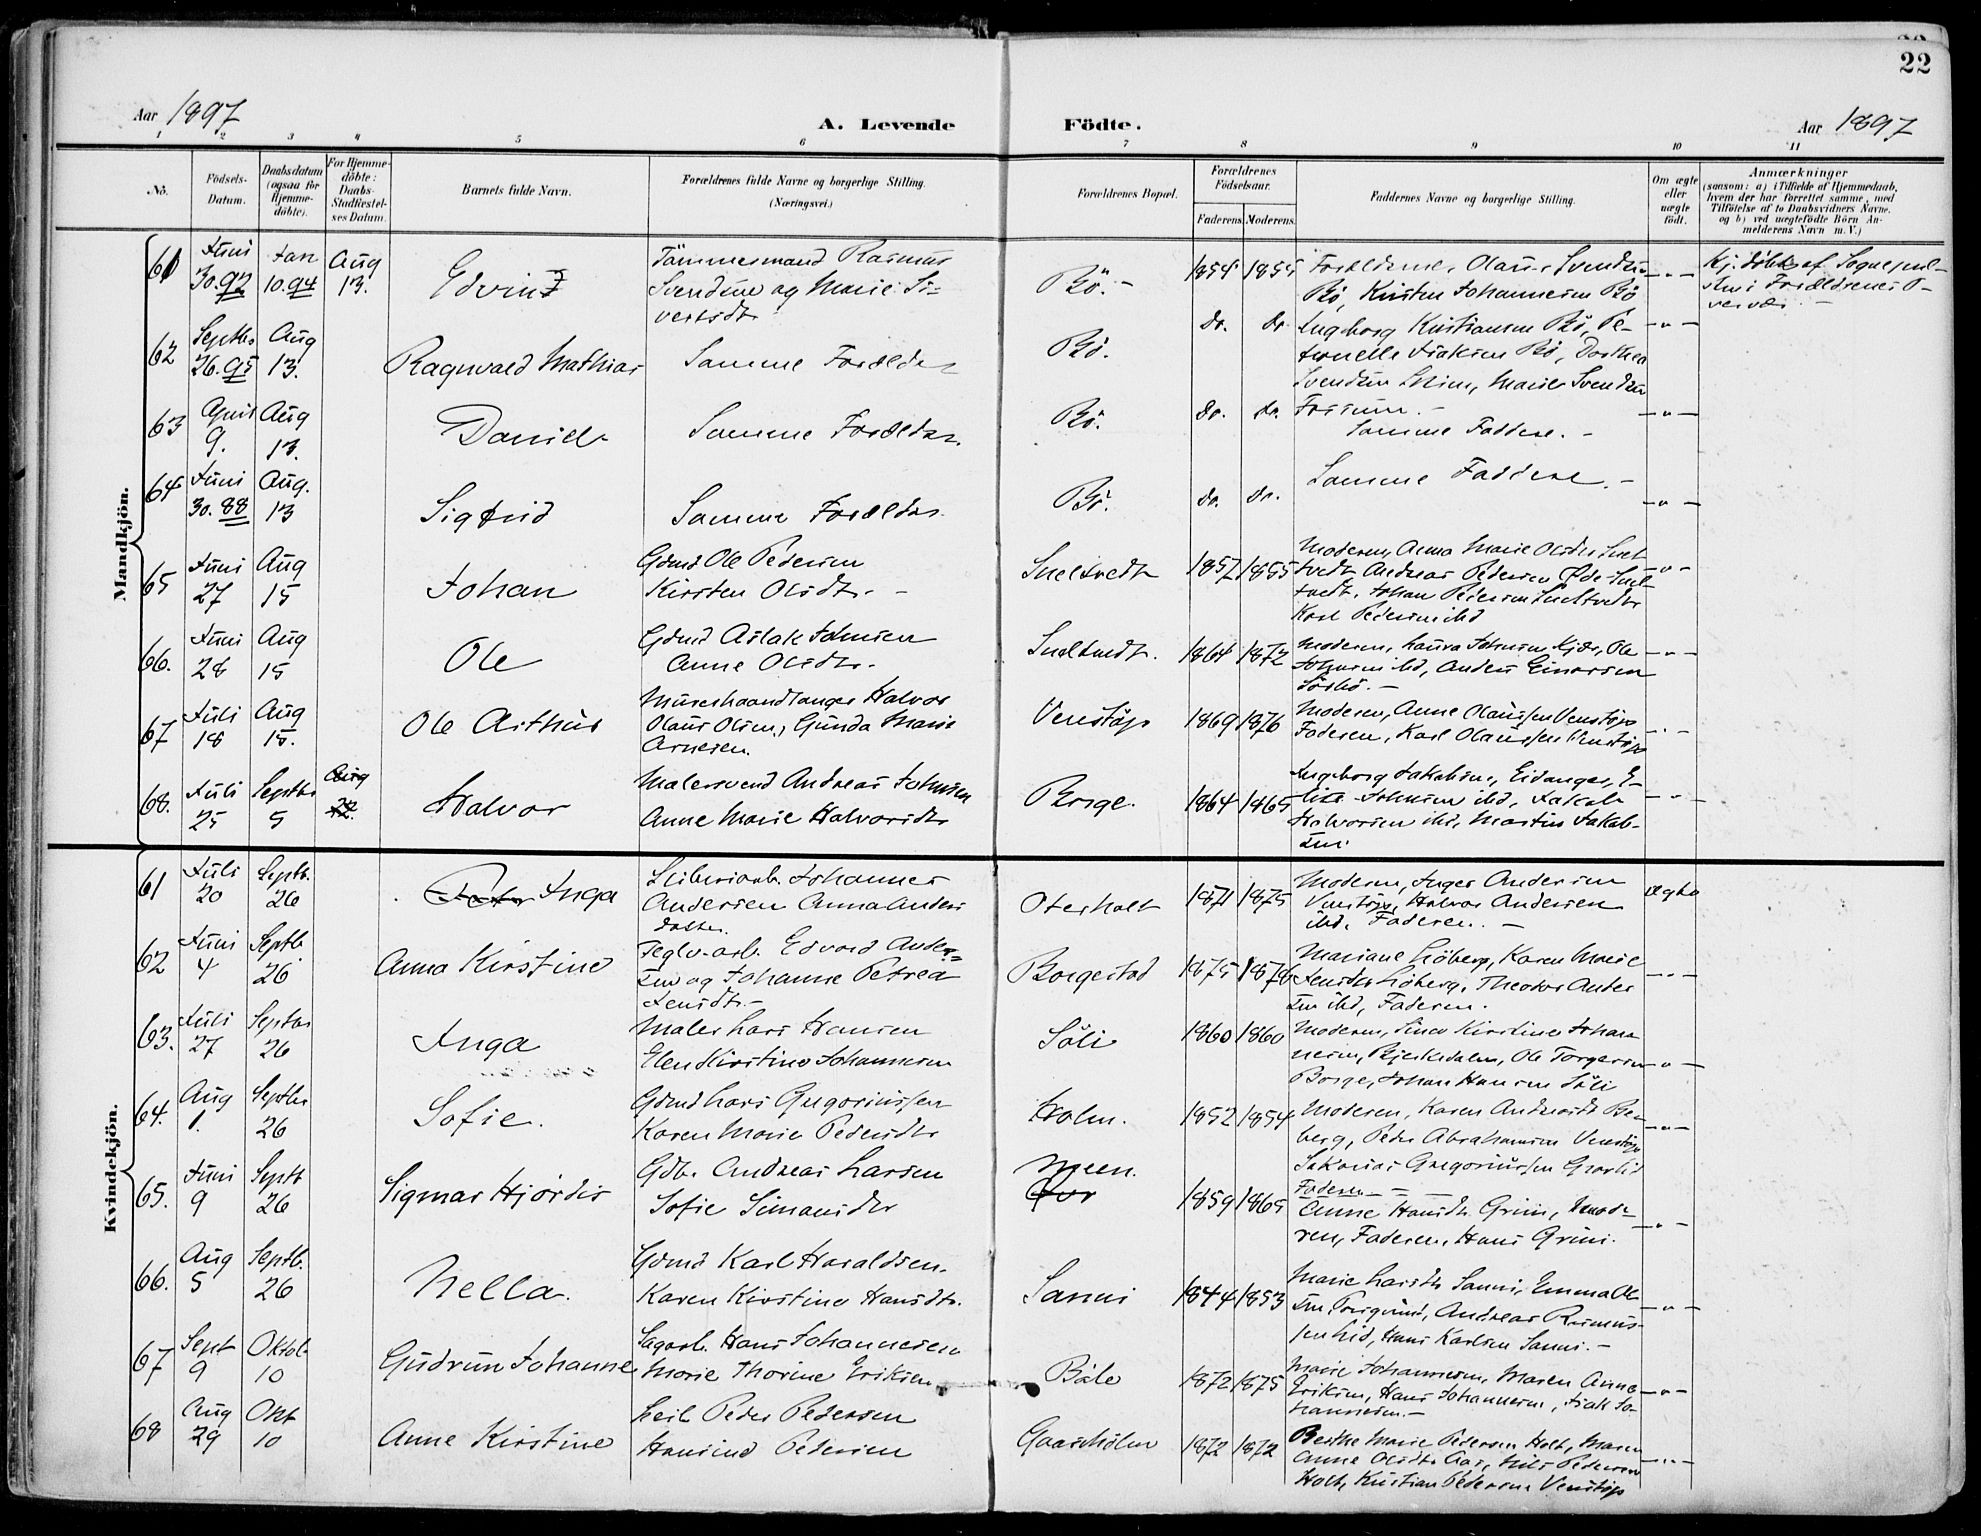 22
Aar 1897
A. Levende Födte.
Aar 1897
1 2 3 4 5 6 7 8 9 10 11
No.
Födsels-
Datum.
Daabsdatum
(ogsaa for
Hjemme-
döbte).
For Hjemme-
döbte:
Daabs-
Stadfæstel-
ses Datum.
Barnets fulde Navn.
Forældrenes fulde Navne og borgerlige Stilling.
(Næringsvei.)
Forældrenes Bopæl.
Forældrenes
Födselsaar.
Faderens. Moderens.
Faddernes Navne og borgerlige Stilling.
Om ægte
eller
uægte
födt.
Anmærkninger
(saasom: a) i Tilfælde af Hjemmedaab,
hvem der har forrettet samme, med
Tilföielse af to Daabsvidners Navne.
og b) ved uægtefödte Börn An-
melderens Navn m. V.)
Mandkjön.
61 Juni 30. 92 Jan 10. 94 Aug 13. Edvin
Tömmermand Rasmus
Svendsen og Marie Si-
vertsdtr
Bö. 1854 1855
Forældrene, Olaus Svendsen
Bö, Kirsten Johannesen Bö
Hj. döbt af Sognepræ-
sten i Forældrenes O-
vervær
62 Septbr 26. 95 Aug 13. Ragnvald Mathias
Samme Forældre
Bö. do. do.
Ingeborg Kristiansen Bö, Pe-
tronelle Isaksen Bö, Dorthea
Svendsen, Marie Svendsen
Fossum.
63 April 9. Aug 13. Daniel
Samme Forældre.
Bö. do. do.
Samme Faddere.
64 Juni 30. 88 Aug. 13 Sigfrid
Samme Forældre.
Bö. do. do.
Samme Faddere.
65 Juni 27 Aug 15 Johan
Gdmd Ole Pedersen
Kirsten Olsdtr.
Sneltvedt 1857 1855
Moderen, Anna Marie Olsdtr Snel-
tvedt Andreas Pedersen Øde Snel-
tvedt, Johan Pedersen Sneltvedt
Karl Pedersen ibid
66. Juni 28 Aug 15 Ole
Gdmd Aslak Johnsen
Anne Olsdtr.
Sneltvedt. 1864 1872
Moderen, Laura Johnsen Kjær, Ole
Johnsen ibid, Anders Einarsen
Sörbö.
67 Juli 18 Aug 15. Ole Arthur
Murerhaandlanger Halvor
Olaus Olsen, Gunda Marie
Arnesen.
Venstöp 1869 1876
Moderen, Anne Olaussen Venstöp
Faderen, Karl Olaussen Venstöp
68. Juli 25 Septbr 5 Aug 22. Halvor
Malersvend Andreas Johnsen
Anne Marie Halvorsdtr
Borge. 1864 1865
Ingeborg Jakobsen, Eidanger, E-
lise Johnsen ibid, Jakob
Halvorsen ibid, Martin Jakob-
sen
Kvindekjön.
61 Juli 20 Septb. 26 Inga
Sliberiarb. Johannes
Andersen Anna Anders
datter
Oterholt 1871 1875
Moderen, Inger Andersen
Venstöp, Halvor Andersen
ibid, Faderen.
ægte
62 Juni 4 Septb. 26 Anna Kirstine
Teglv.arb. Edvard Ander-
sen og Johanne Petrea
Jensdtr.
Borgestad 1875 1876
Mariane Löberg, Karen Marie
Jensdtr Löberg, Theodor Ander
sen ibid, Faderen.
63. Juli 27 Septbr 26 Inga
Maler Lars Hansen
Elen Kirstine Johannesen
Söli 1860 1860
Moderen, Kirstine Johan
nesen, Bjerkedalen, Ole Torgersen
Borge, Johan Hansen Söli
64. Aug 1. Septbr 26 Sofie.
Gdmd Lars Gregoriussen
Karen Marie Pedersdtr
Holm. 1852 1854
Moderen, Karen Andreasdtr Ber-
berg, Peder Abrahamsen Venstöp
Sakarias Gregoriussen
Faderen
65. Juni 9 Septb 26 Sigmar Hjördis
Gdbr. Andreas Larsen
Sofie Simonsdtr
Meen. 1859 1865
Anne Hansdtr. Grini, Mode-
ren, Faderen, Hans Grini.
66. Aug 5 Septb. 26 Nella.
Gdmd Karl Haraldsen.
Karen Kirstine Hansdtr.
Sanni 1844 1853
Marie Larsdtr Sanni, Emma Ol
sen Porsgrund, Andreas Rasmus-
sen Lid, Hans Karlsen Sanni.
67 Sept 9 Oktob 10 Gudrun Johanne
Sagarb. Hans Johannesen
Marie Thorine Eriksen
Böle 1872 1875
Marie Johannesen, Maren Anne
Eriksen, Hans Johannesen, Isak Jo-
hannesen.
68 Aug 29 Okt 10 Anne Kirstine
Leil. Peder Pedersen
Hansine Pedersen
Gaasholm 1872 1872
Berthe Marie Pedersen Holt, Maren
Anne Olsdtr Aas, Nils Pedersen
Holt, Kristian Pedersen Venstöp